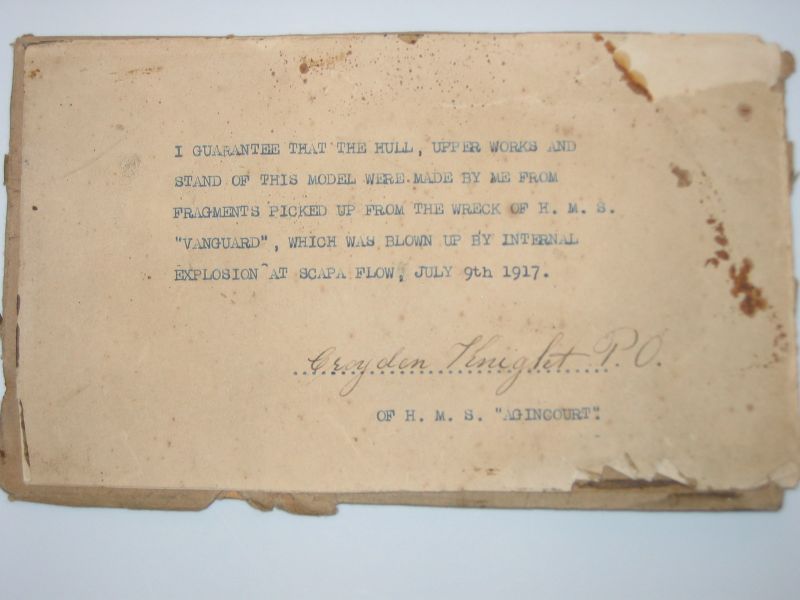 I GUARANTEE THAT THE HULL, UPPER WORKS AND
STAND OF THIS MODEL WERE MADE BY ME FROM
FRAGMENTS PICKED UP FROM THE WRECK OF H. M. S.
"VANGUARD", WHICH WAS BLOWN UP BY INTERNAL
EXPLOSION AT SCAPA FLOW, JULY 9th 1917.
Croydon Knight P.O.
OF H. M. S. "AGINCOURT".